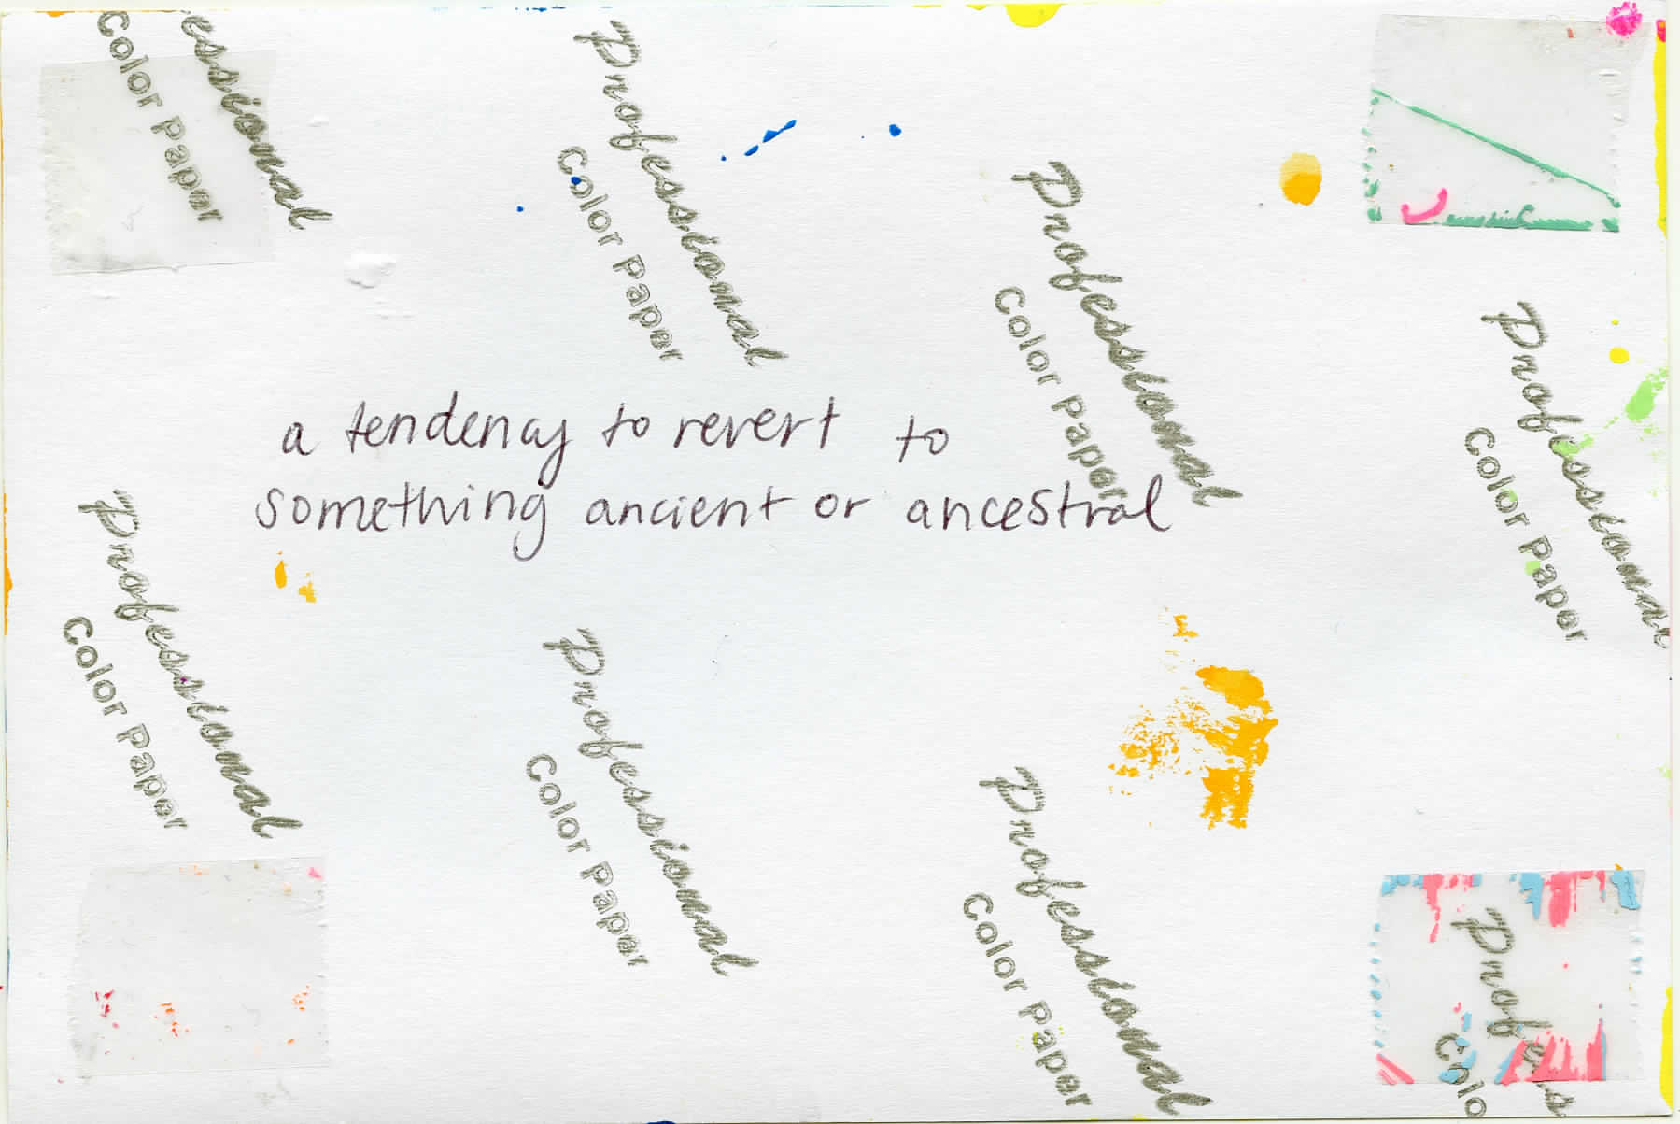 essional
Color Paper
Professional
Color Paper
Professional
Color Paper
Professional
Color Paper
a tendency to revert to
something ancient or ancestral
Professional
Color Paper
Professional
Color Paper
Professional
Color Paper
Profess
Colo